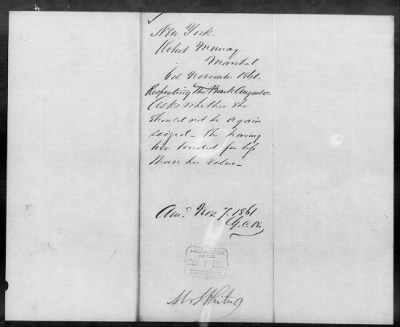 New York.
Robert Murray
Marshal
6th November 1861.
Respecting The Bark Augusta.
Asks whether she
should not be again
seized - she having
been bonded for less
than her value -
Ans.d Nov. 7. 1861